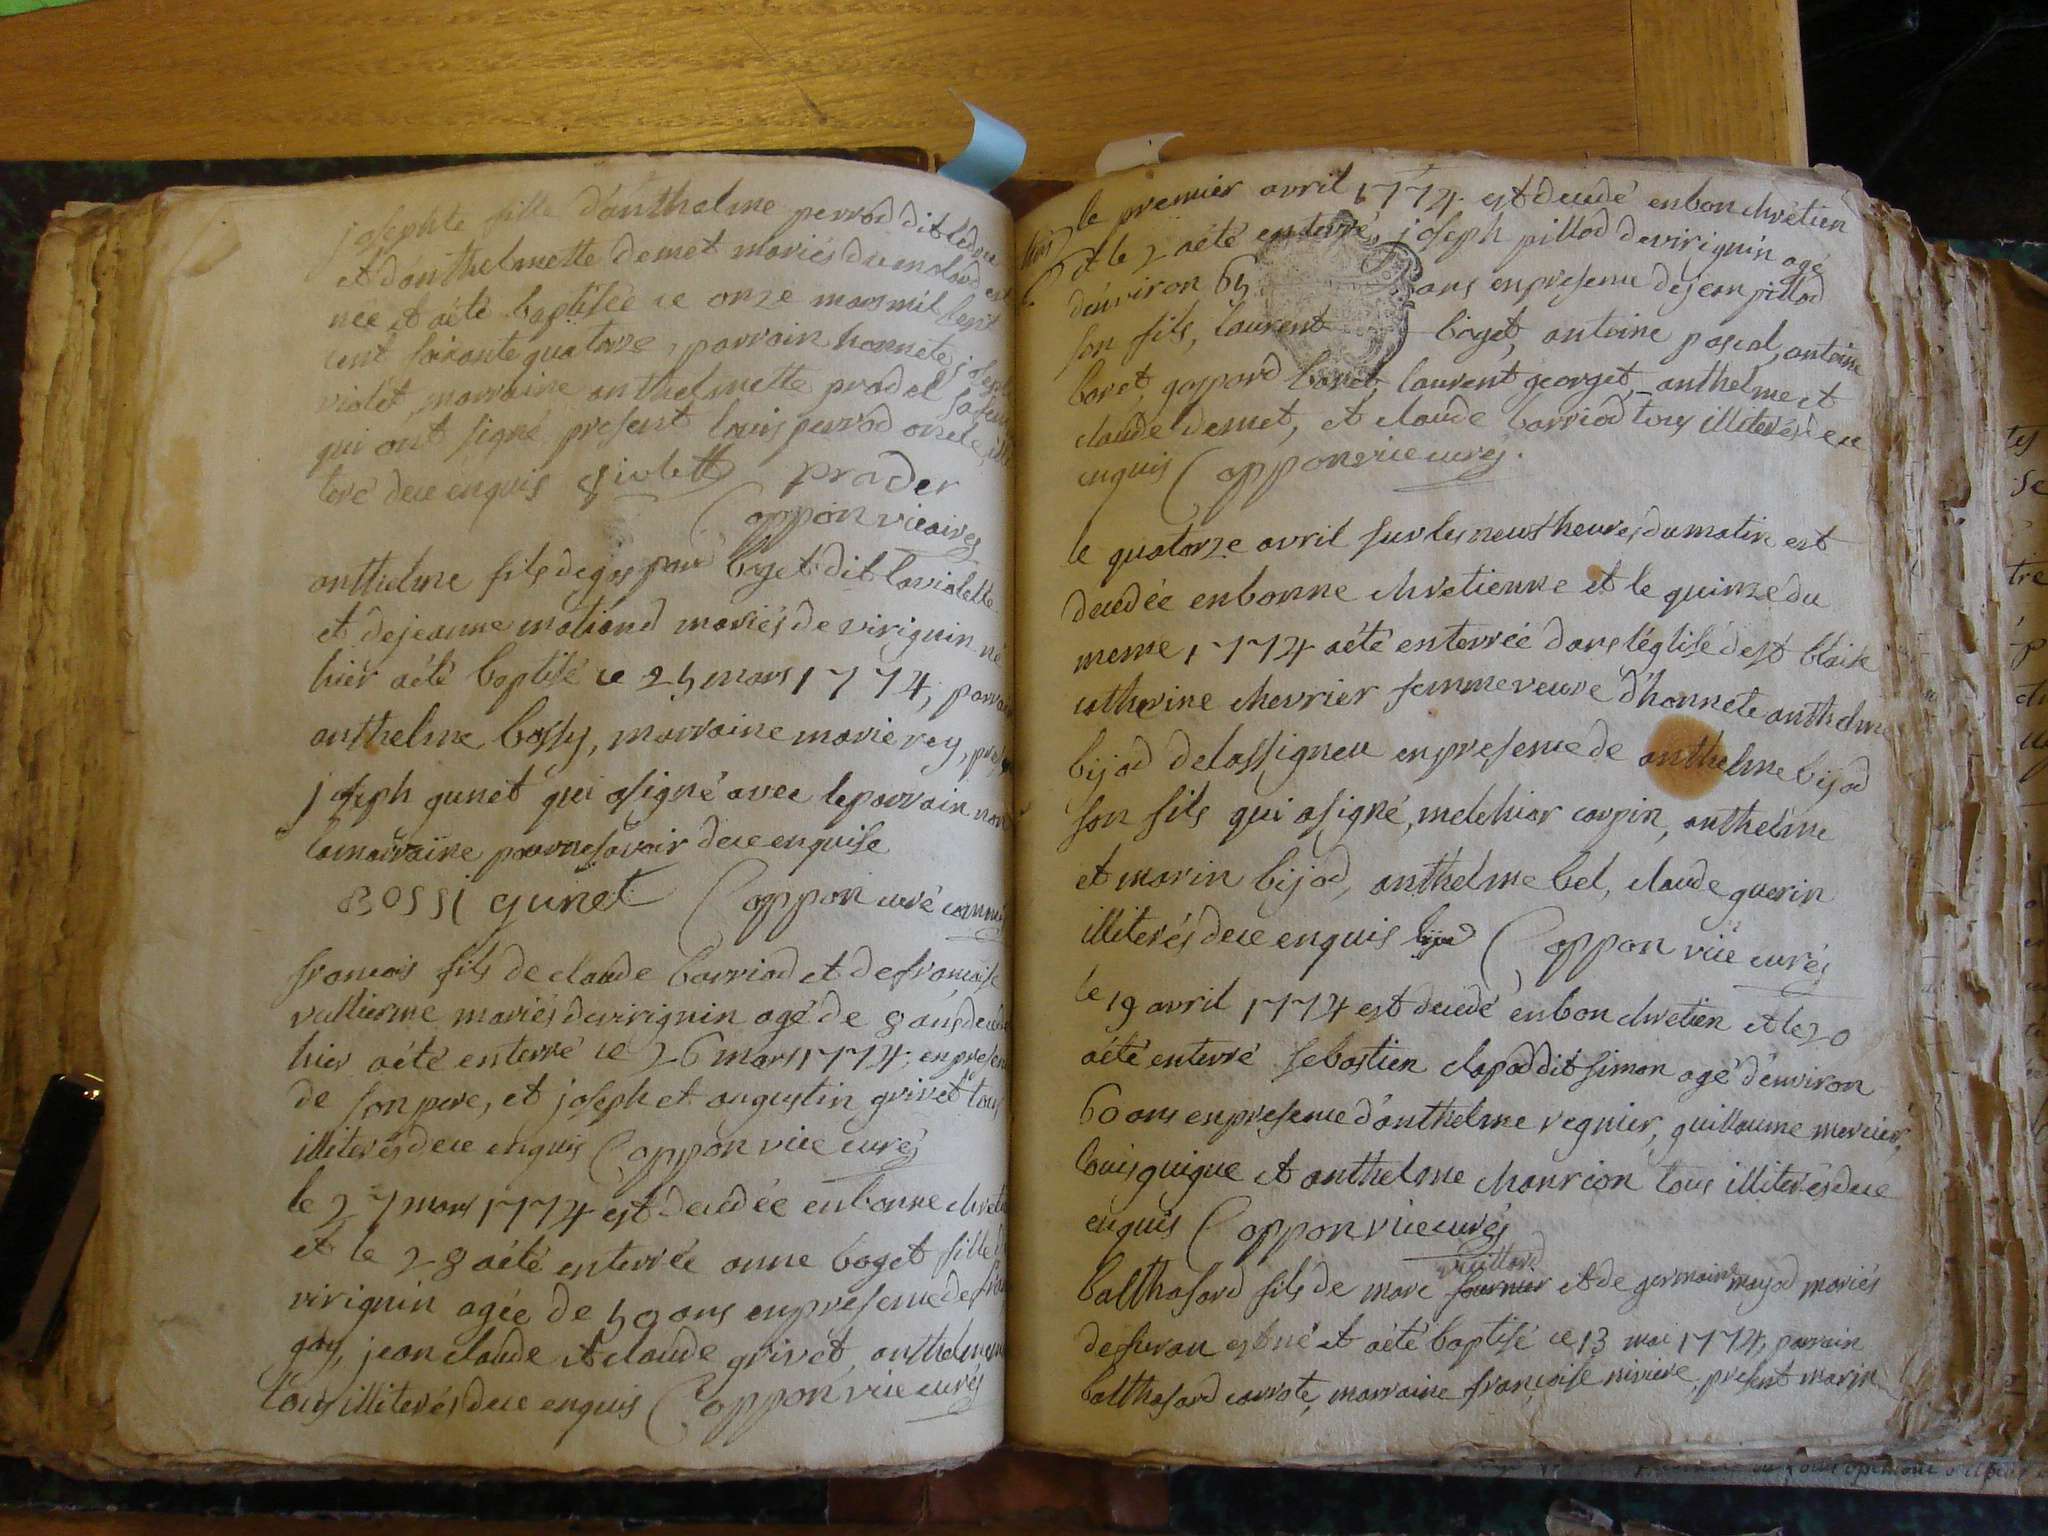 josephte fille d'anthelme perrod dit ledru
et d'anthelmette demet mariés du molard est
née et aété baptisée ce onze mars mil sept
cent soixante quatorze, parrain honnete joseph
violet, marraine anthelmette pradel
qui ont signé present louis perrod oncle illi
teré dece enquis violett prader
Coppon vicaires
anthelme fils degaspard boget dit laviolette
et dejeanne moliand mariés de virignin né
hier aété baptisé ce 25 mars 1774, parrain
anthelme bossy, marraine marie rey, present
joseph gunet qui asigné avec leparrain non
lamarraine pournesavoir dece enquise
BOSSi gunet Coppon curé commis
francois fils de claude barriod et defrancoise
vullierme mariés devirignin agé de 8 ans decedé
hier aété enterré ce 26 mars 1774, enpresence
de sonpere, et joseph et augustin grivet tous
illiterés dece enquis Coppon vice curés
le 27 mars 1774 est decedée enbonne chretienne
et le 28 aété enterrée anne boget fille de
virignin agée de 50 ans enpresence de
gay, jean claude et claude grivet, anthelme
tous illiterés dece enquis Coppon vice curés
le premier avril 1774 est decedé enbon chrétien
et le 2 aété enterré, joseph pillod devirignin agé
d'environ 65 ans enpresence dejean pillod
son fils, laurent boget, antoine pascal, antoine
boret, gaspard boret, laurent georget, anthelme et
claude demet, et claude barriod tous illiterés dece
enquis Coppon vice curés.
le quatorze avril sur les neuf heures du matin est
decedée enbonne chretienne et le quinze du
meme 1774 aété enterrée dans léglise de st blaise
catherine chevrier femme veuve d'honnete anthelme
bijod delassigneu enpresence de anthelme bijod
son fils qui asigné, melchior carpin, anthelme
et marin bijod, anthelme bel, claude guerin
illiterés dece enquis bijod Coppon vice curés
le 19 avril 1774 est decedé enbon chretien et le 20
aété enterré sebastien clapod dit simon agé d'environ
60 ans enpresence d'anthelme regnier, guillaume mercier,
louis guigue et anthelme chanrion tous illiterés dece
enquis Coppon vice curés
vuillard
balthasard fils de marc fournier et de germaine mayod mariés
desuran est né et aété baptisé ce 13 mai 1774, parrain
balthasard carrote, marraine françoise riviere, present marin